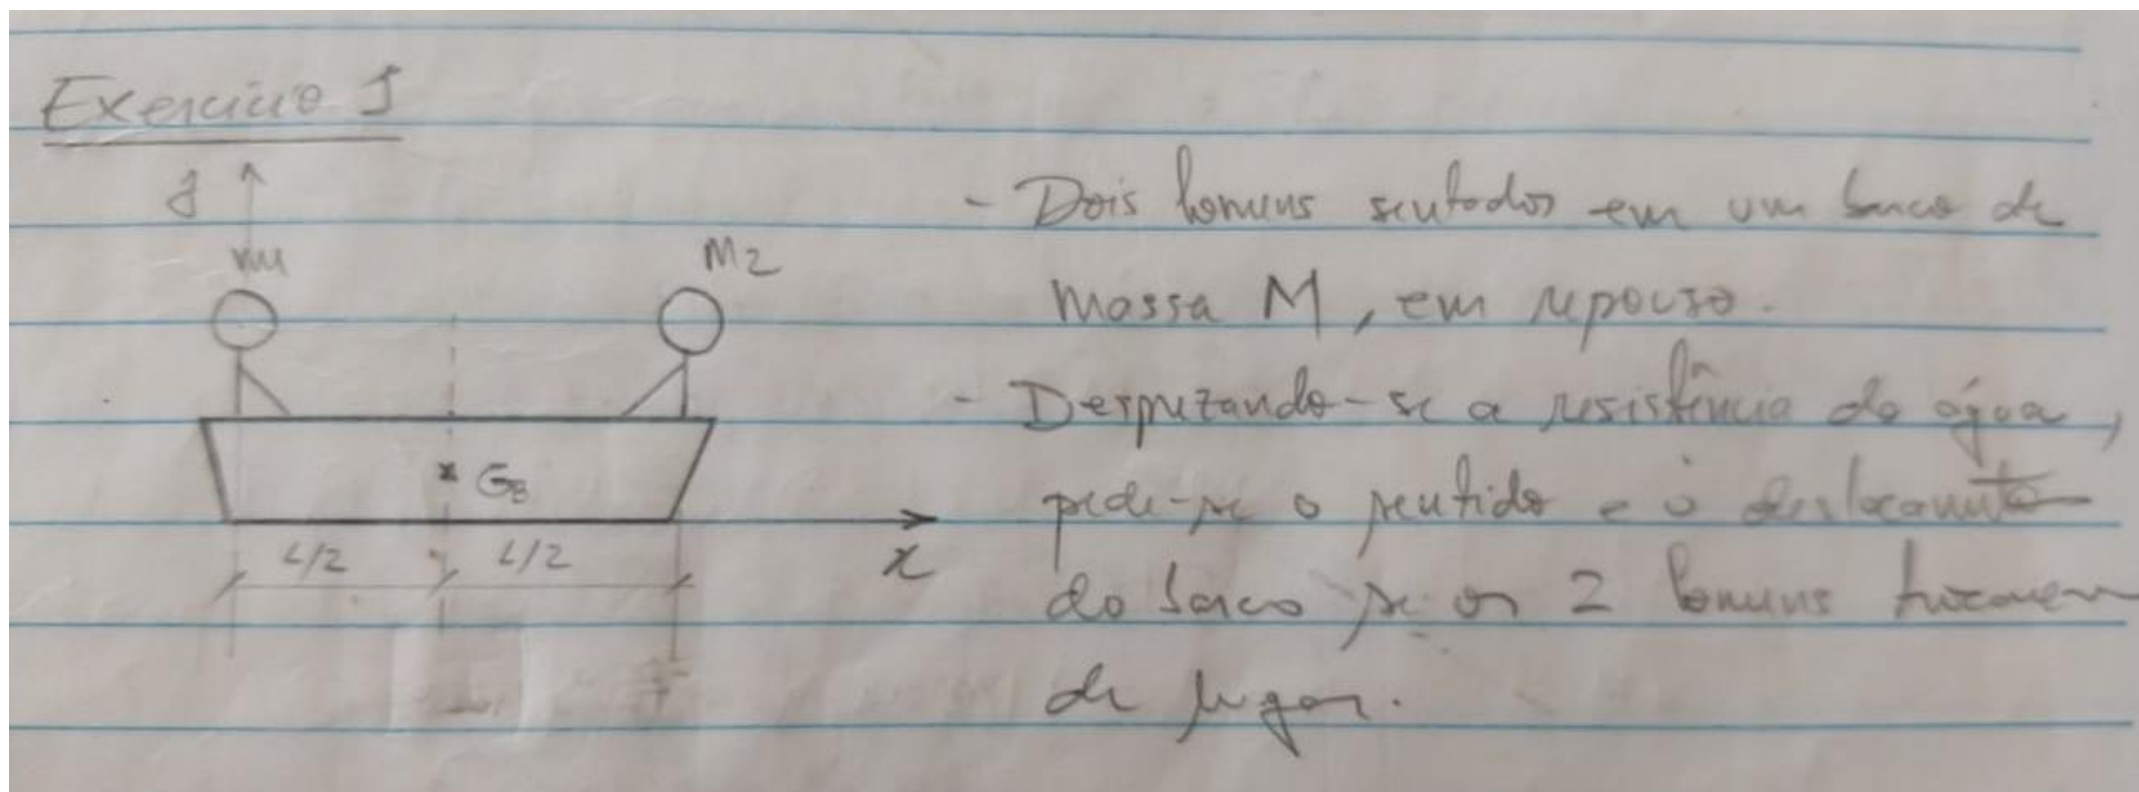 Exercício 1
y
m1
M2
G_B
L/2
L/2
x
- Dois homens sentados em um barco de
massa M, em repouso.
- Desprezando-se a resistência da água,
pede-se o sentido e o deslocamento
do barco se os 2 homens trocarem
de lugar.